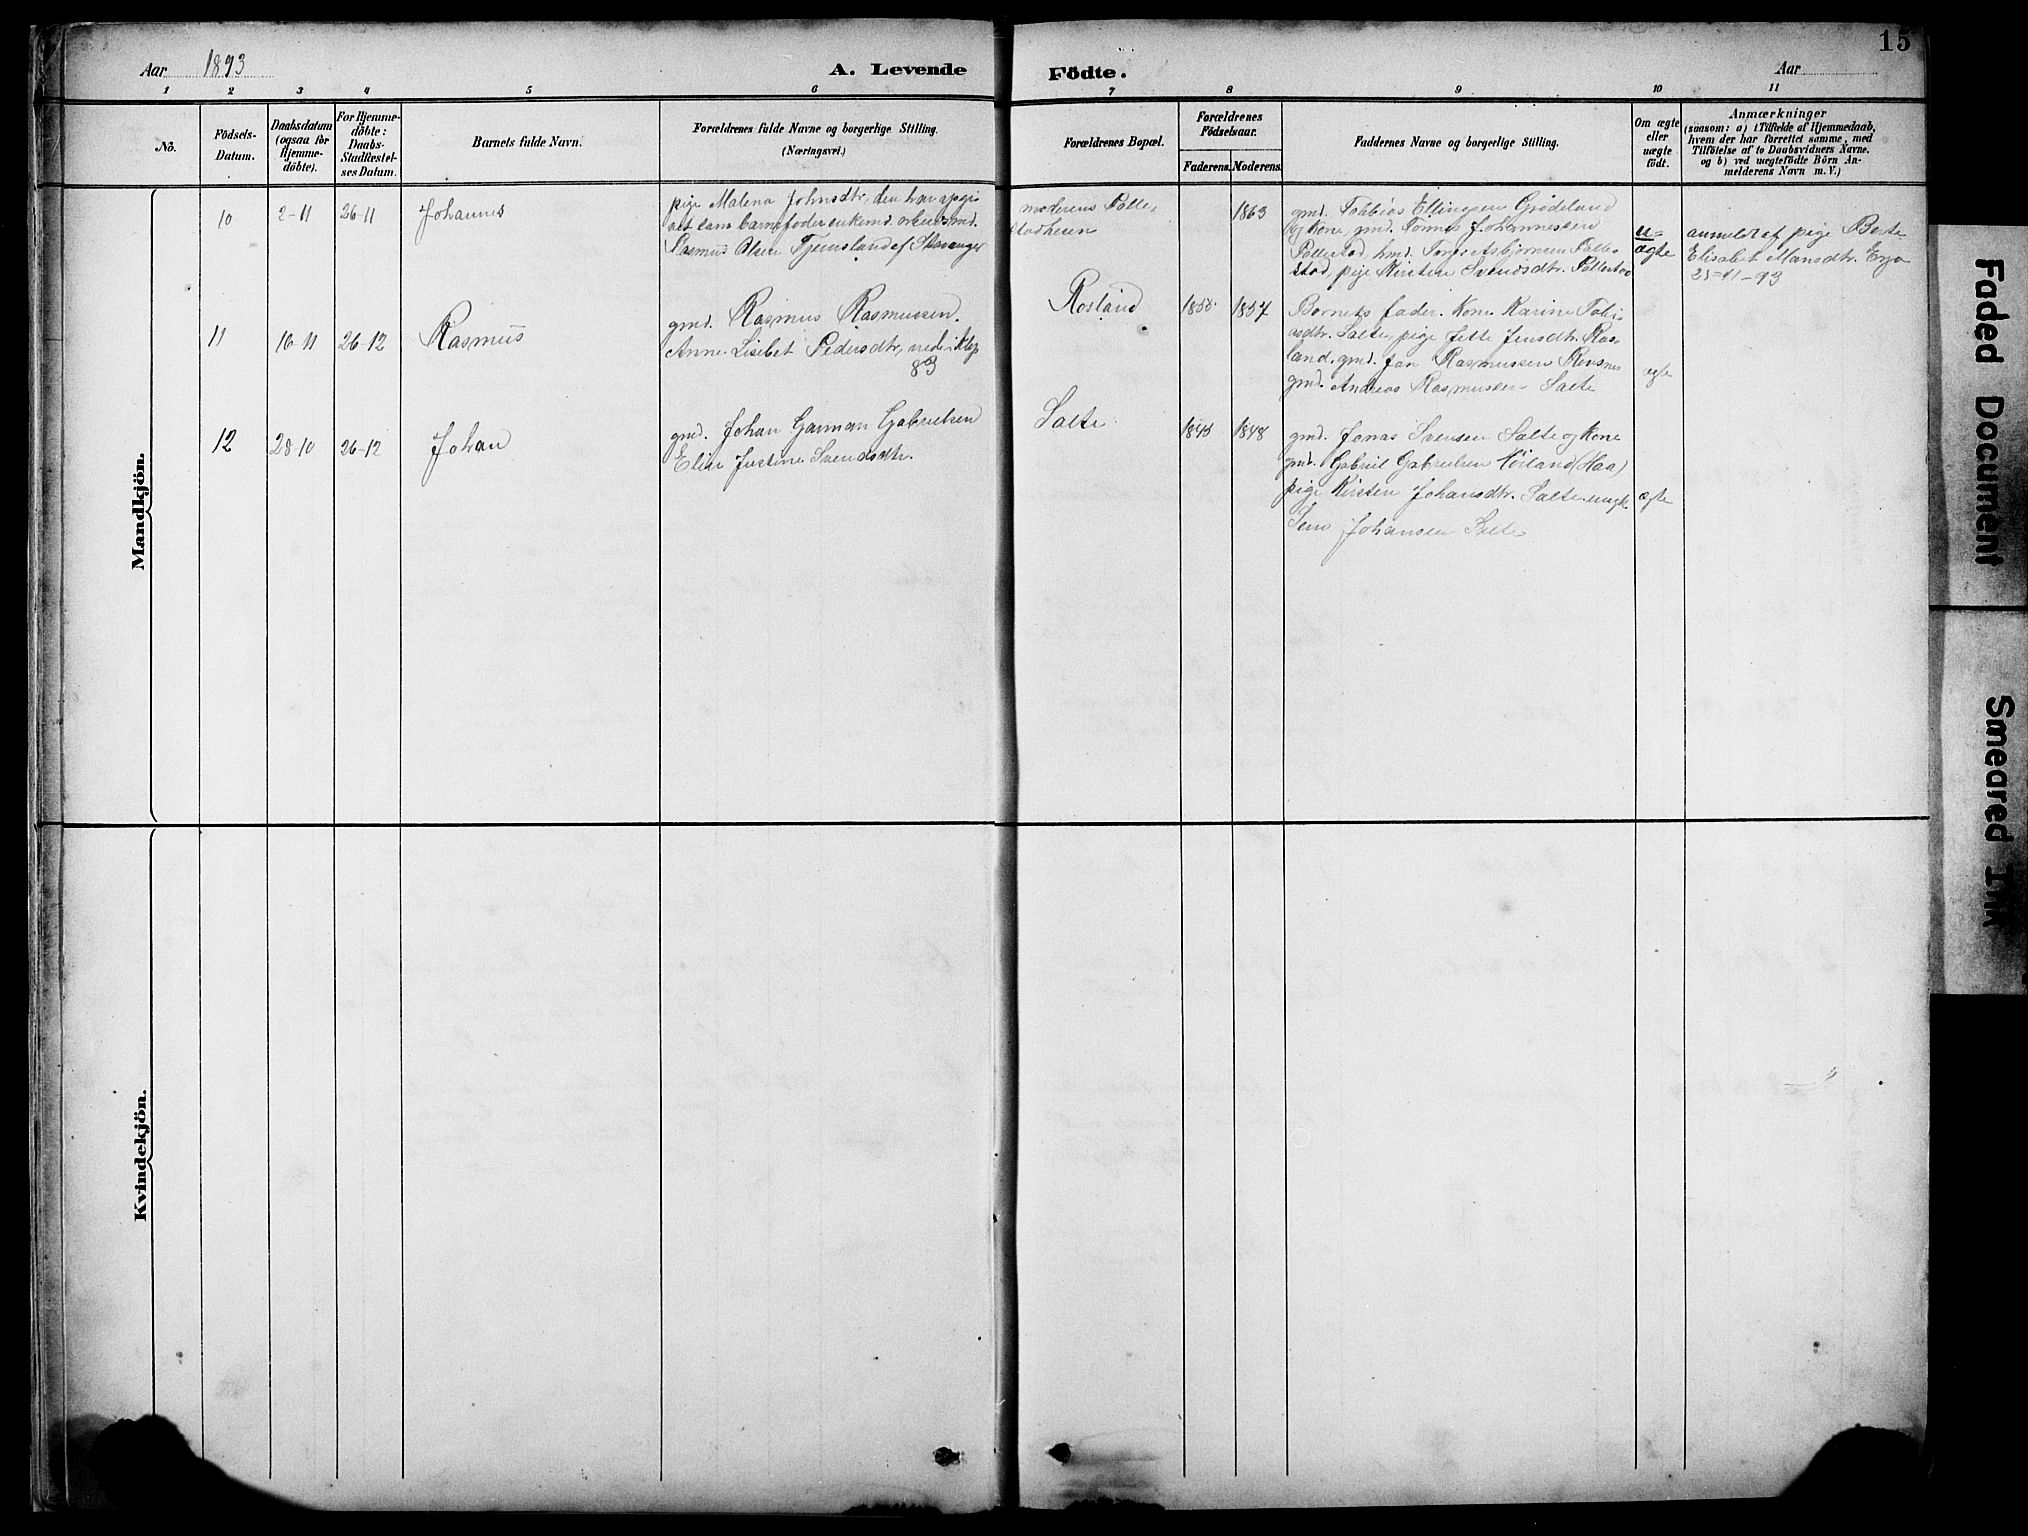 Aar 1893
A. Levende Födte.
Aar
15
1 2 3 4 5 6 7 8 9 10 11
No.
Födsels-
Datum.
Daabsdatum
(ogsaa for
Hjemme-
döbte).
For Hjemme-
döbte:
Daabs-
Stadfestel-
ses Datum.
Barnets fulde Navn.
Forældrenes fulde Navne og borgerlige Stilling.
(Næringsvei.)
Forældrenes Bopæl.
Forældrenes
Födselsaar.
Faderens. Moderens.
Faddernes Navne og borgerlige Stilling.
Om ægte
eller
uægte
födt.
Anmærkninger
(saasom: a) i Tilfælde af Hjemmedaab,
hvem der har forrettet samme, med
Tilföielse af to Daabsvidners Navne.
og b) ved uegtefödte Börn An-
melderens Navn m. V.)
Mandkjön.
10 2-11 26-11 Johannes
pige Malena Johnsdtr, den har opgi-
enkemd. arbeidsmd.
Rasmus Olsen Tjemsland af Stavanger
moderens Polle-
stadheien
1863
gmd. Tobbias Ellingsen Grödeland
og Kone, gmd. Tonnes Johannessen
Pollestad, hmd. Torger Asbjörnsen Polle-
stad, pige Kirsten Svendsdtr. Pollestad
u-
ægte
anmeldt af pige Berte
Elisabet Mansdtr. Erga
25-11-93
11 16-11 26-12 Rasmus
gmd. Rasmus Rasmussen.
Anne Lisebet Pedersdtr, viede i Klep
83
Rosland
1855 1857
Barnets fader. Kone Karine Tobi-
asdtr. Salte, pige Jette Jensdtr. Ros-
land, gmd. Jan Rasmussen Revsnes
gmd. Andreas Rasmussen Salte
ægte
12 28-10 26-12 Johan
gmd. Johan Garman Gabrielsen
Elise Justine Svendsdtr.
Salte
1845 1848
gmd. Jonas Svensen Salte og Kone
gmd. Gabriel Gabrielsen Höiland (Haa)
pige Kirsten Johansdtr. Salte. ungk.
Johansen Salte
ægte
Kvindekjön.
Faded Document
Smeared Ink